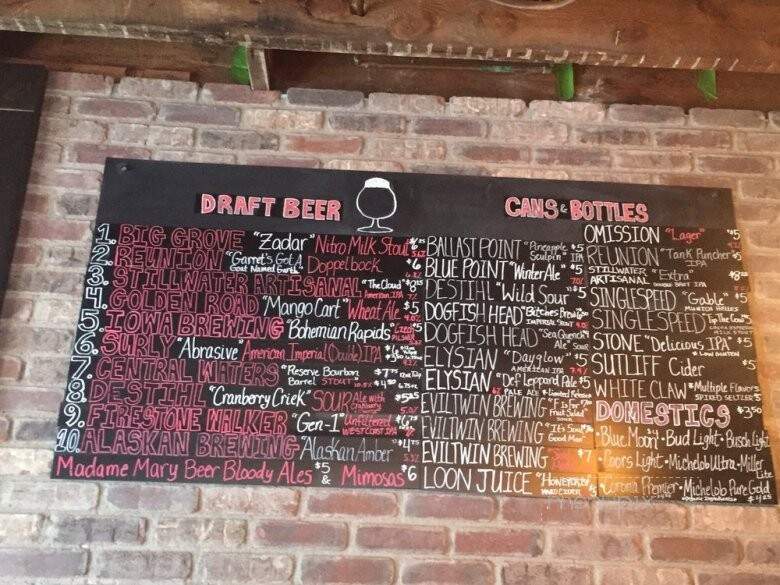 DRAFT BEER
1. BIG GROVE "Zadar" Nitro Milk Stout
2. REUNION "Garret's Got A Goat Named Garth" Doppelbock $6
3. STILLWATER ARTISANAL "The Cloud" American IPA
4. GOLDEN ROAD "Mango Cart" Wheat Ale $5
5. IONA BREWING "Bohemian Rapids"
6. SURLY "Abrasive" American Imperial (Double) IPA
7. CENTRAL WATERS "Reserve Bourbon Barrel STOUT
8. DESTIHL "Cranberry Criek" SOUR Ale with
9. FIRESTONE WALKER "Gen-1" Unfiltered WEST COAST IPA
10. ALASKAN BREWING "Alaskan Amber
Madame Mary Beer Bloody Ales $5 & Mimosas $6
CANS & BOTTLES
BALLAST POINT "Pineapple Sculpin" IPA $5
BLUE POINT "Winter Ale" $5
DESTIHL "Wild Sour" $5
DOGFISH HEAD "Bitches Brew"
DOGFISH HEAD "SeaQuench" Ale" Sour
ELYSIAN "Dayglow" $5 AMERICAN IPA
ELYSIAN "Def Leppard Pale $5 PALE ALE
EVIL TWIN BREWING
EVIL TWIN BREWING "It's Good Man"
EVIL TWIN BREWING $7
LOON JUICE "Honeycrisp HARD CIDER
OMISSION "Lager" $5
REUNION "Tank Puncher" $5 IPA
STILLWATER ARTISANAL "Extra"
SINGLESPEED "Gable" $5 MUNICH HELLES
SINGLESPEED "Tip The Cow"
STONE "Delicious IPA" $5
SUTLIFF Cider $5
WHITE CLAW *Multiple Flavors SPIKED SELTZER $5
DOMESTICS $3.50
• Blue Moon • Bud Light • Busch Light
• Coors Light • Michelob Ultra • Miller Lite
• Corona Premier • Michelob Pure Gold